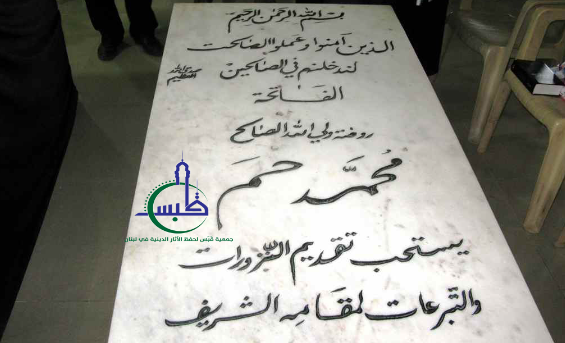 بسم الله الرحمن الرحيم
الذين آمنوا وعملوا الصالحت
لندخلنهم في الصالحين
صدق الله العظيم
الفاتحة
روضة ولي الله الصالح
محمد حمم
قبس
جمعية قبس لحفظ الآثار الدينية في لبنان
يستحب تقديم النذورات
والتبرعات لمقامه الشريف